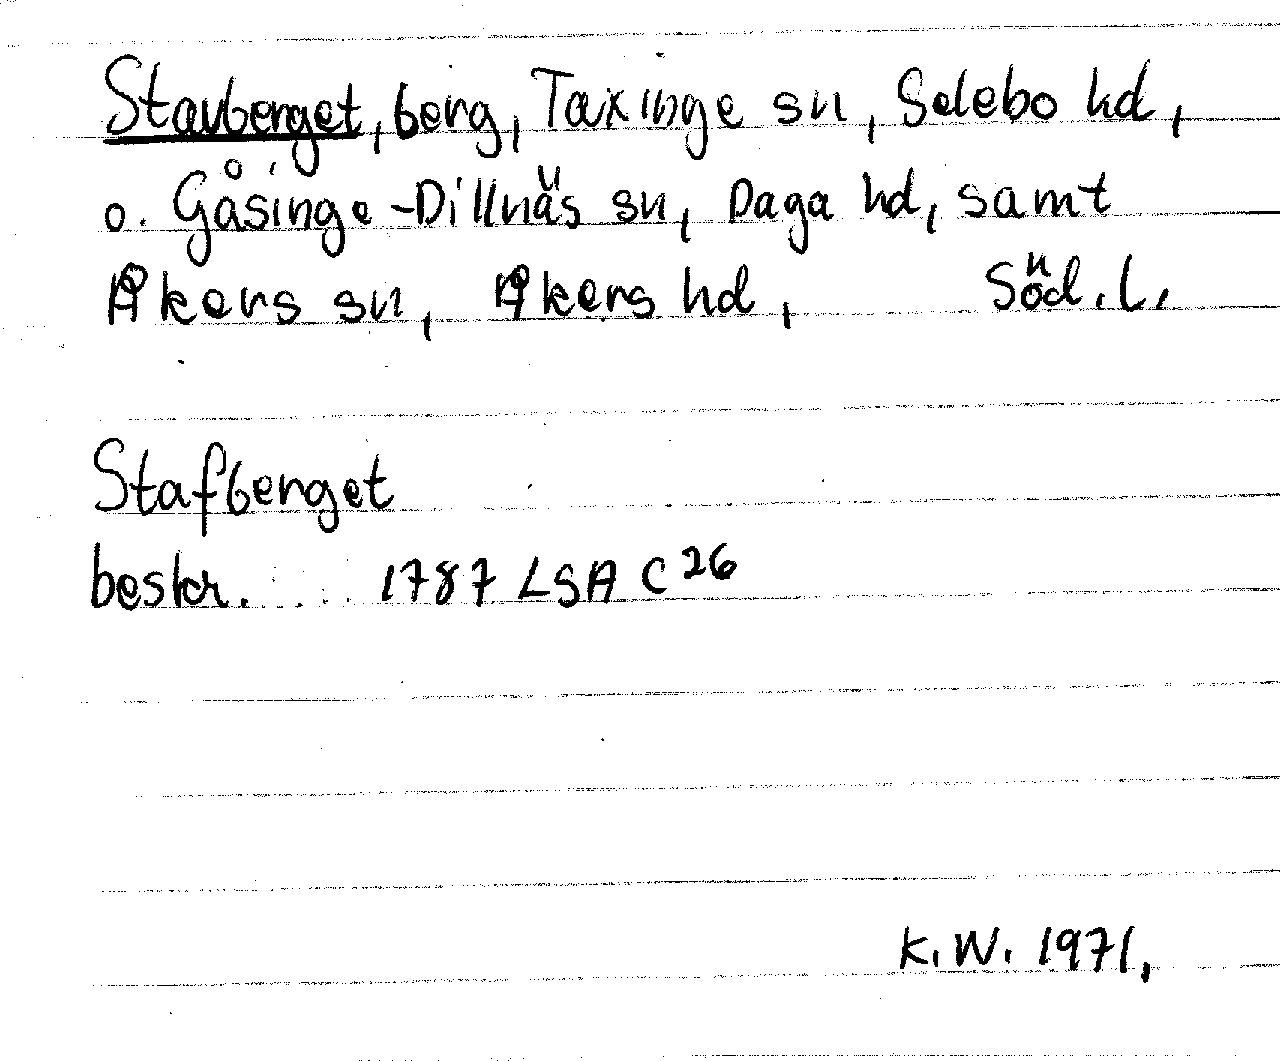 Stavberget, berg, Taxinge sn, Selebo hd,
o. Gåsinge-Dillnäs sn, Daga hd, samt
Åkers sn, Åkers hd, Söd. l.
Stafberget
beskr. 1787 LSA C 26
K. W. 1971.